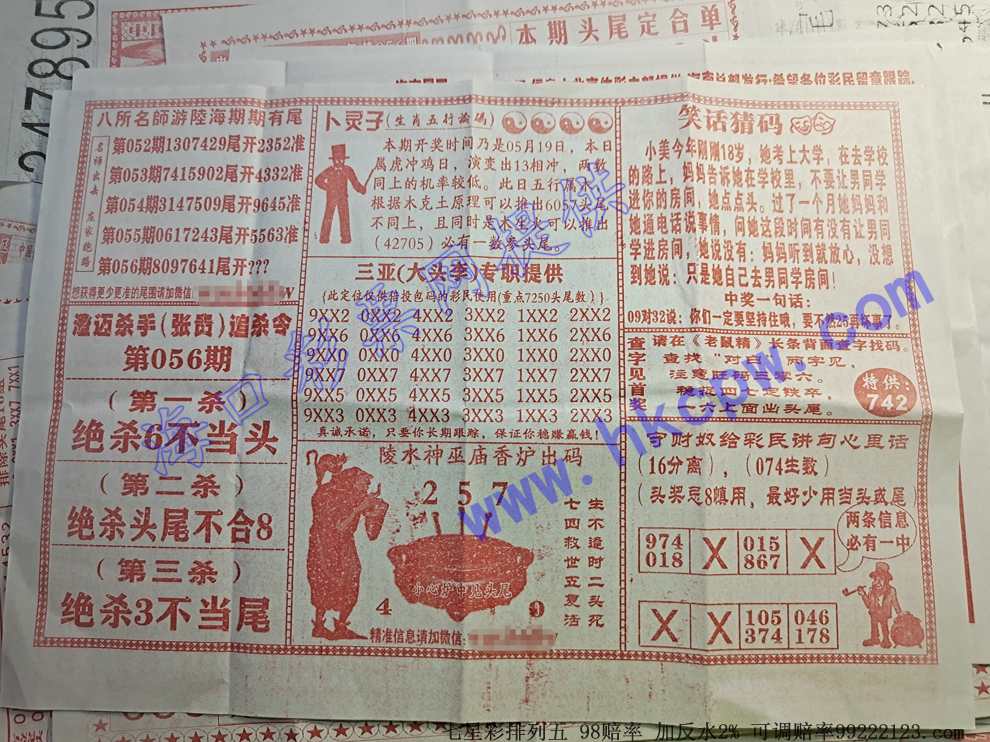 本期头尾定合单
247895
八所名師游陸海期期有尾
第052期1307429尾开2352准
第053期7415902尾开4332准
第054期3147509尾开9645准
第055期0617243尾开5563准
第056期8097641尾开???
想获得更少更准的尾围请加微信
澄迈杀手(张贵)追杀令
第056期
(第一杀)
绝杀6不当头
(第二杀)
绝杀头尾不合8
(第三杀)
绝杀3不当尾
卜灵子(生肖五行论码)
本期开奖时间乃是05月19日，本日
属虎冲鸡日，演变出13相冲，两数
同上的机率较低。此日五行属木，
根据木克土原理可以推出6057头尾
不同上，且同时是水生火可以推出
(42705)必有一数参头尾。
三亚(大头李)专职提供
(此定位仅供猎投包码的彩民使用(重点7250头尾数))
9XX2 0XX2 4XX2 3XX2 1XX2 2XX2
9XX6 0XX6 4XX6 3XX6 1XX6 2XX6
9XX0 0XX0 4XX0 3XX0 1XX0 2XX0
9XX7 0XX7 4XX7 3XX7 1XX7 2XX7
9XX5 0XX5 4XX5 3XX5 1XX5 2XX5
9XX3 0XX3 4XX3 3XX3 1XX3 2XX3
真诚承诺，只要你长期跟踪，保证你稳赚赢钱!
陵水神巫庙香炉出码
2 5 7
生不逢时二头死
七四救世立复活
小心炉中见头尾
4 9
精准信息请加微信
笑话猜码
小美今年刚刚18岁，她考上大学，在去学校
的路上，妈妈告诉她在学校里，不要让男同学
进你的房间，她点点头。过了一个月她妈妈和
她通电话说事情，问她这段时间有没有让男同
学进房间，她说没有；妈妈听到就放心，没想
到她说：只是她自己去男同学房间!
中奖一句话：
09对32说：你们一定要坚持住哦，要不然25再坏事了。
查字见首奖
请在《老鼠精》长条背面查字找码。
查找“对白”两字见，
注意旺码三零六。
稳捉四七定铁卒，
一六上面出头尾。
特供：
742
守财奴给彩民讲句心里话
(16分离)，(074生数)
(头奖忌8慎用，最好少用当头或尾
两条信息
必有一中
974 X 015 X
018 867
X X 105 046
374 178
海口彩票网提供
www.hkcpw.com
七星彩排列五 98赔率 加反水2% 可调赔率99222123.com